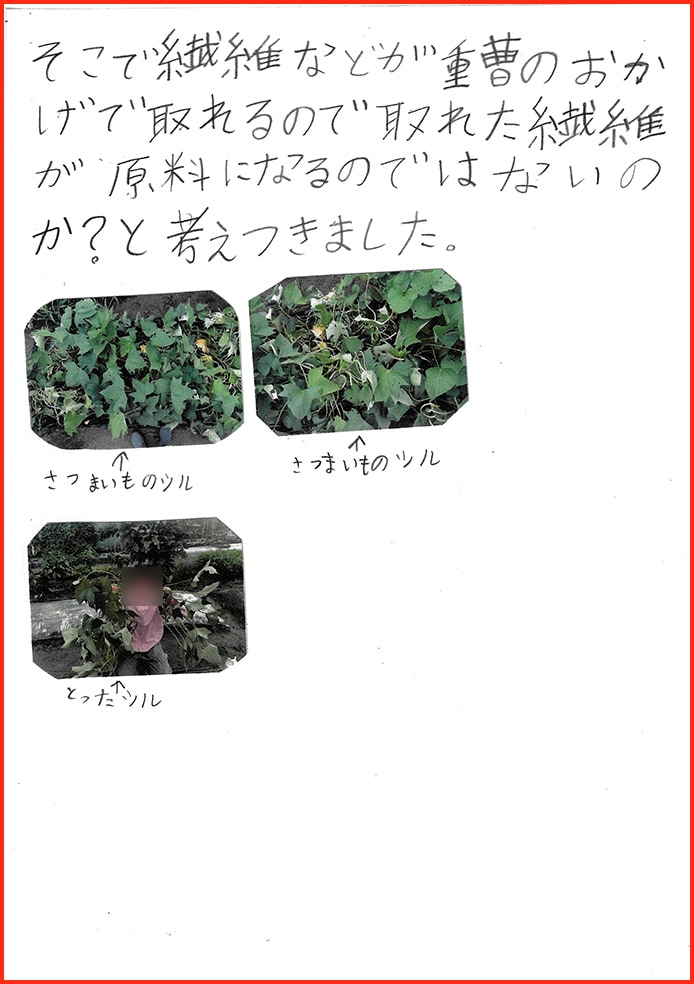 そこで繊維などが重曹のおか
げで取れるので取れた繊維
が原料になるのではないの
か?と考えつきました。
さつまいものツル
さつまいものツル
とったツル